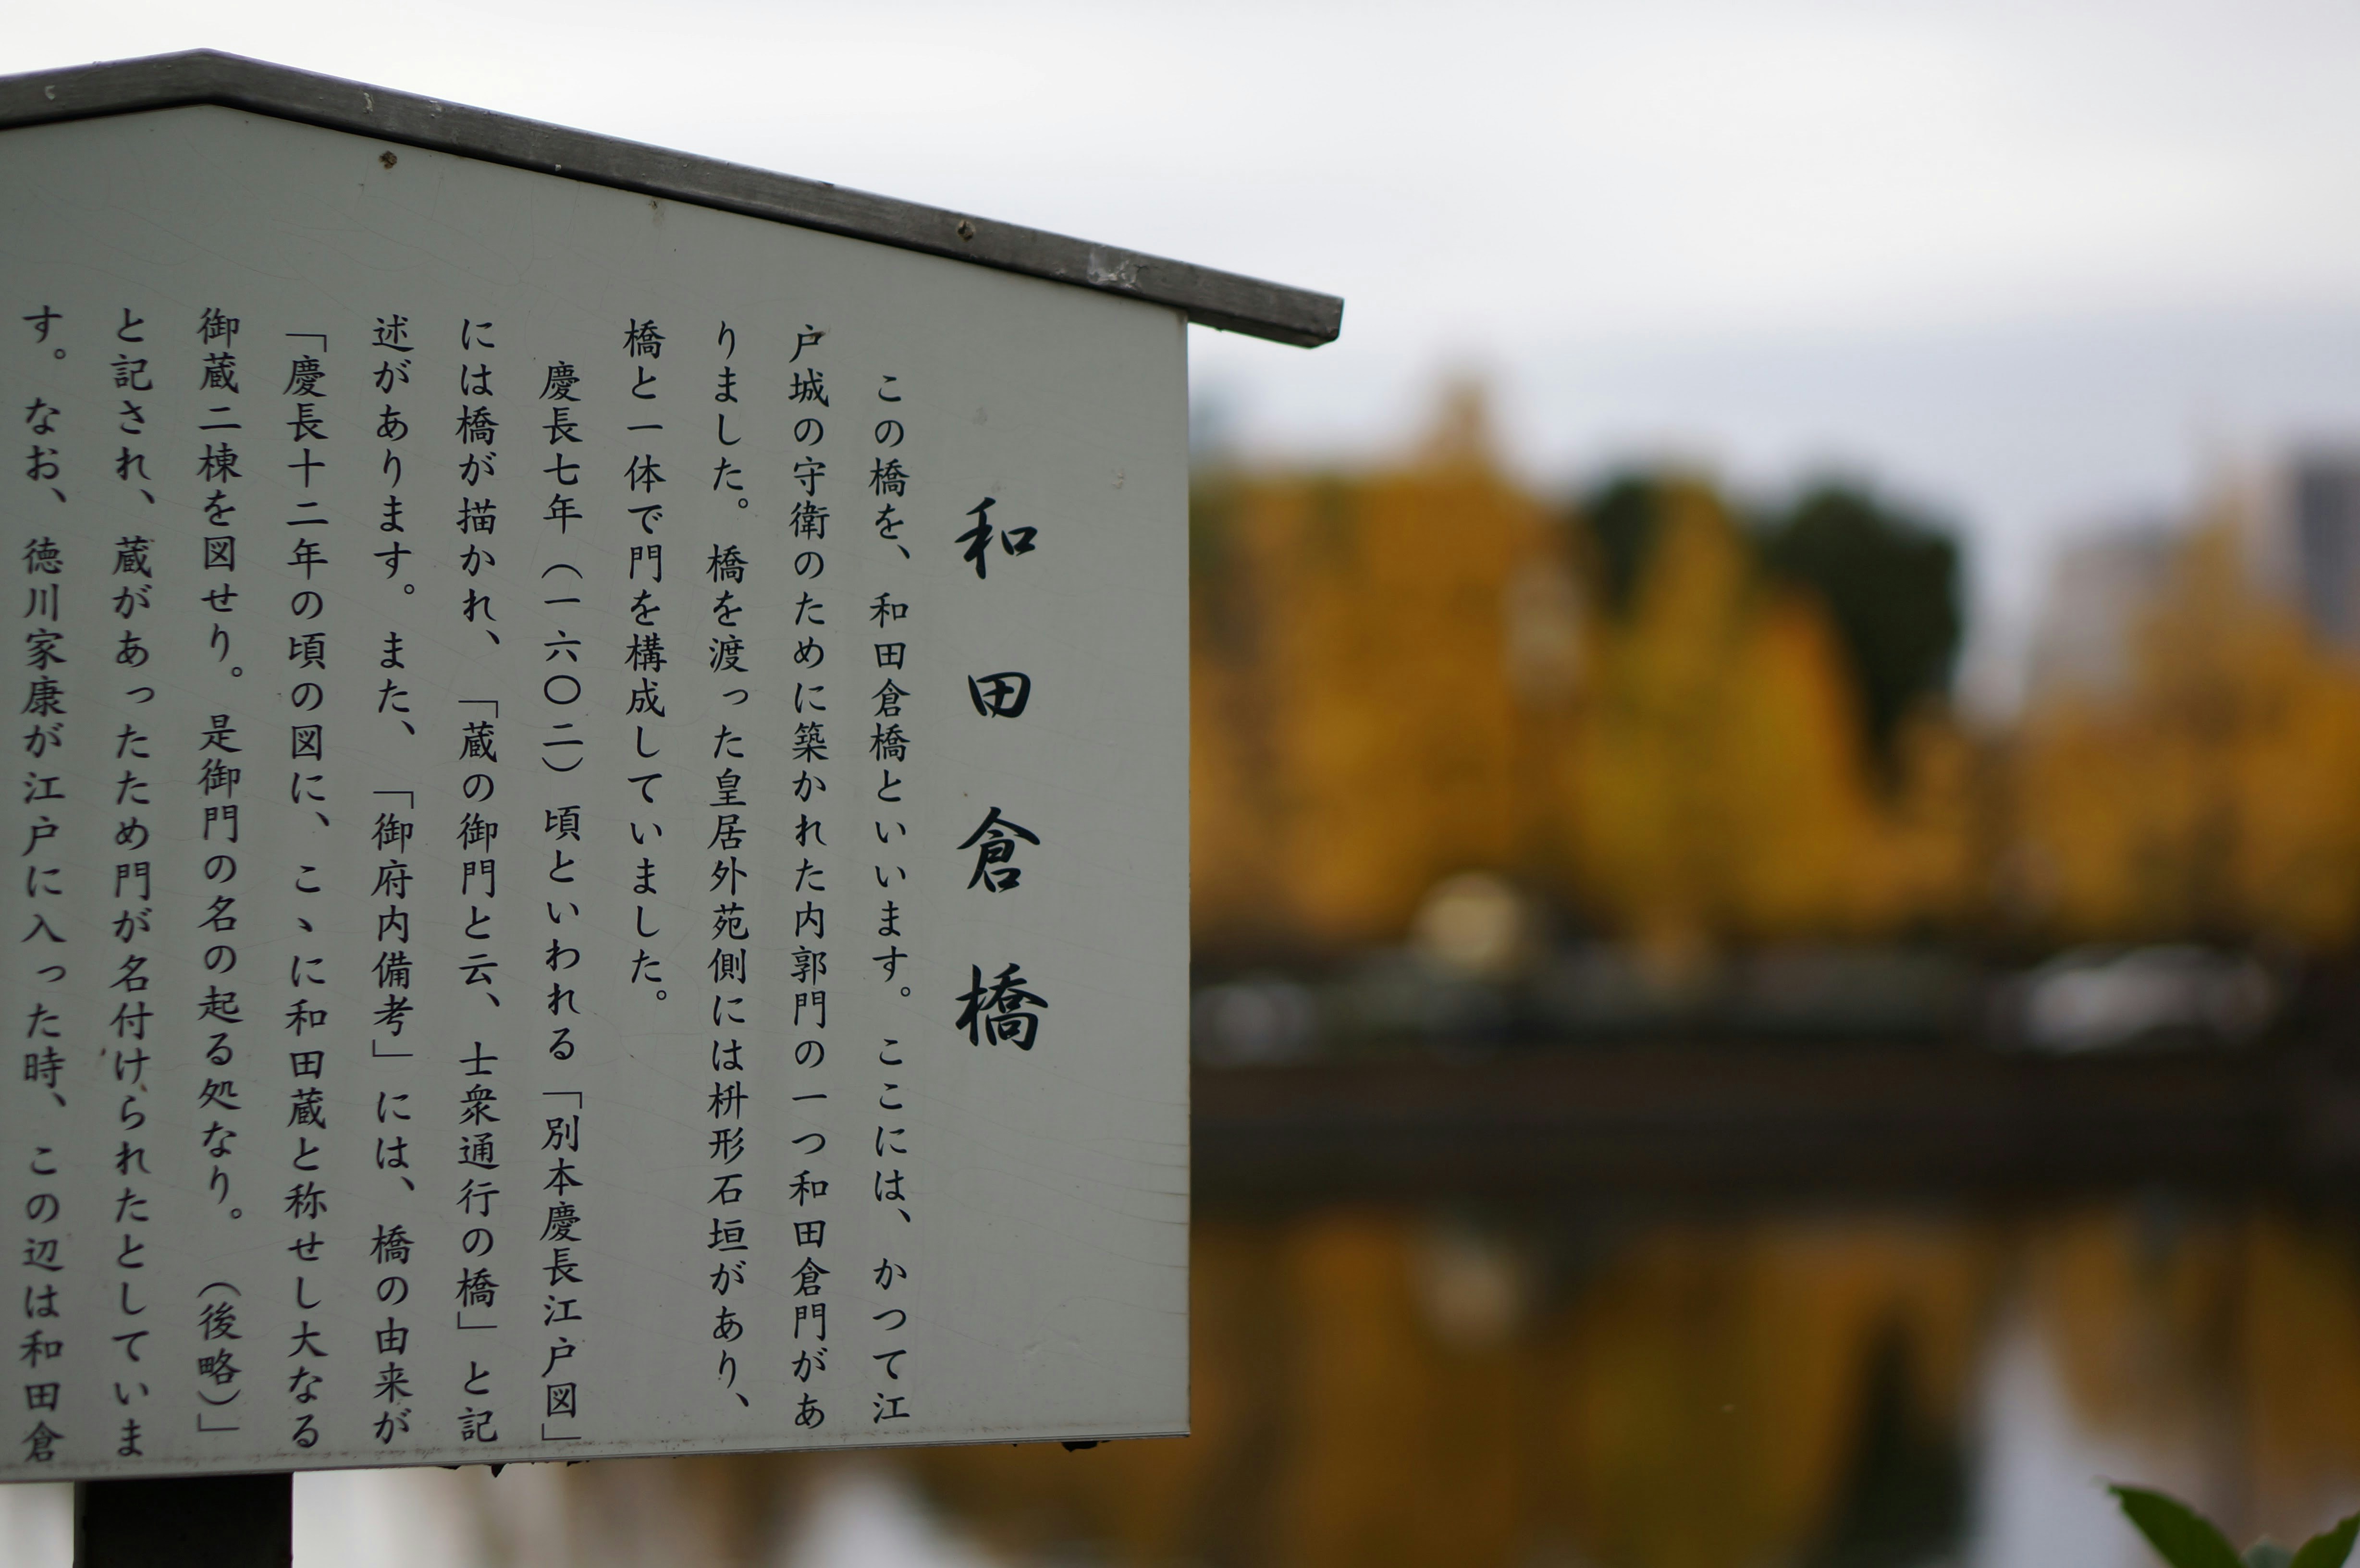 和田倉橋
この橋を、和田倉橋といいます。ここには、かつて江
戸城の守衛のために築かれた内郭門の一つ和田倉門があ
りました。橋を渡った皇居外苑側には枡形石垣があり、
橋と一体で門を構成していました。
慶長七年（一六〇二）頃といわれる「別本慶長江戸図」
には橋が描かれ、「蔵の御門と云、士衆通行の橋」と記
述があります。また、「御府内備考」には、橋の由来が
「慶長十二年の頃の図に、こゝに和田蔵と称せし大なる
御蔵二棟を図せり。是御門の名の起る処なり。（後略）」
と記され、蔵があったため門が名付けられたとしていま
す。なお、徳川家康が江戸に入った時、この辺は和田倉